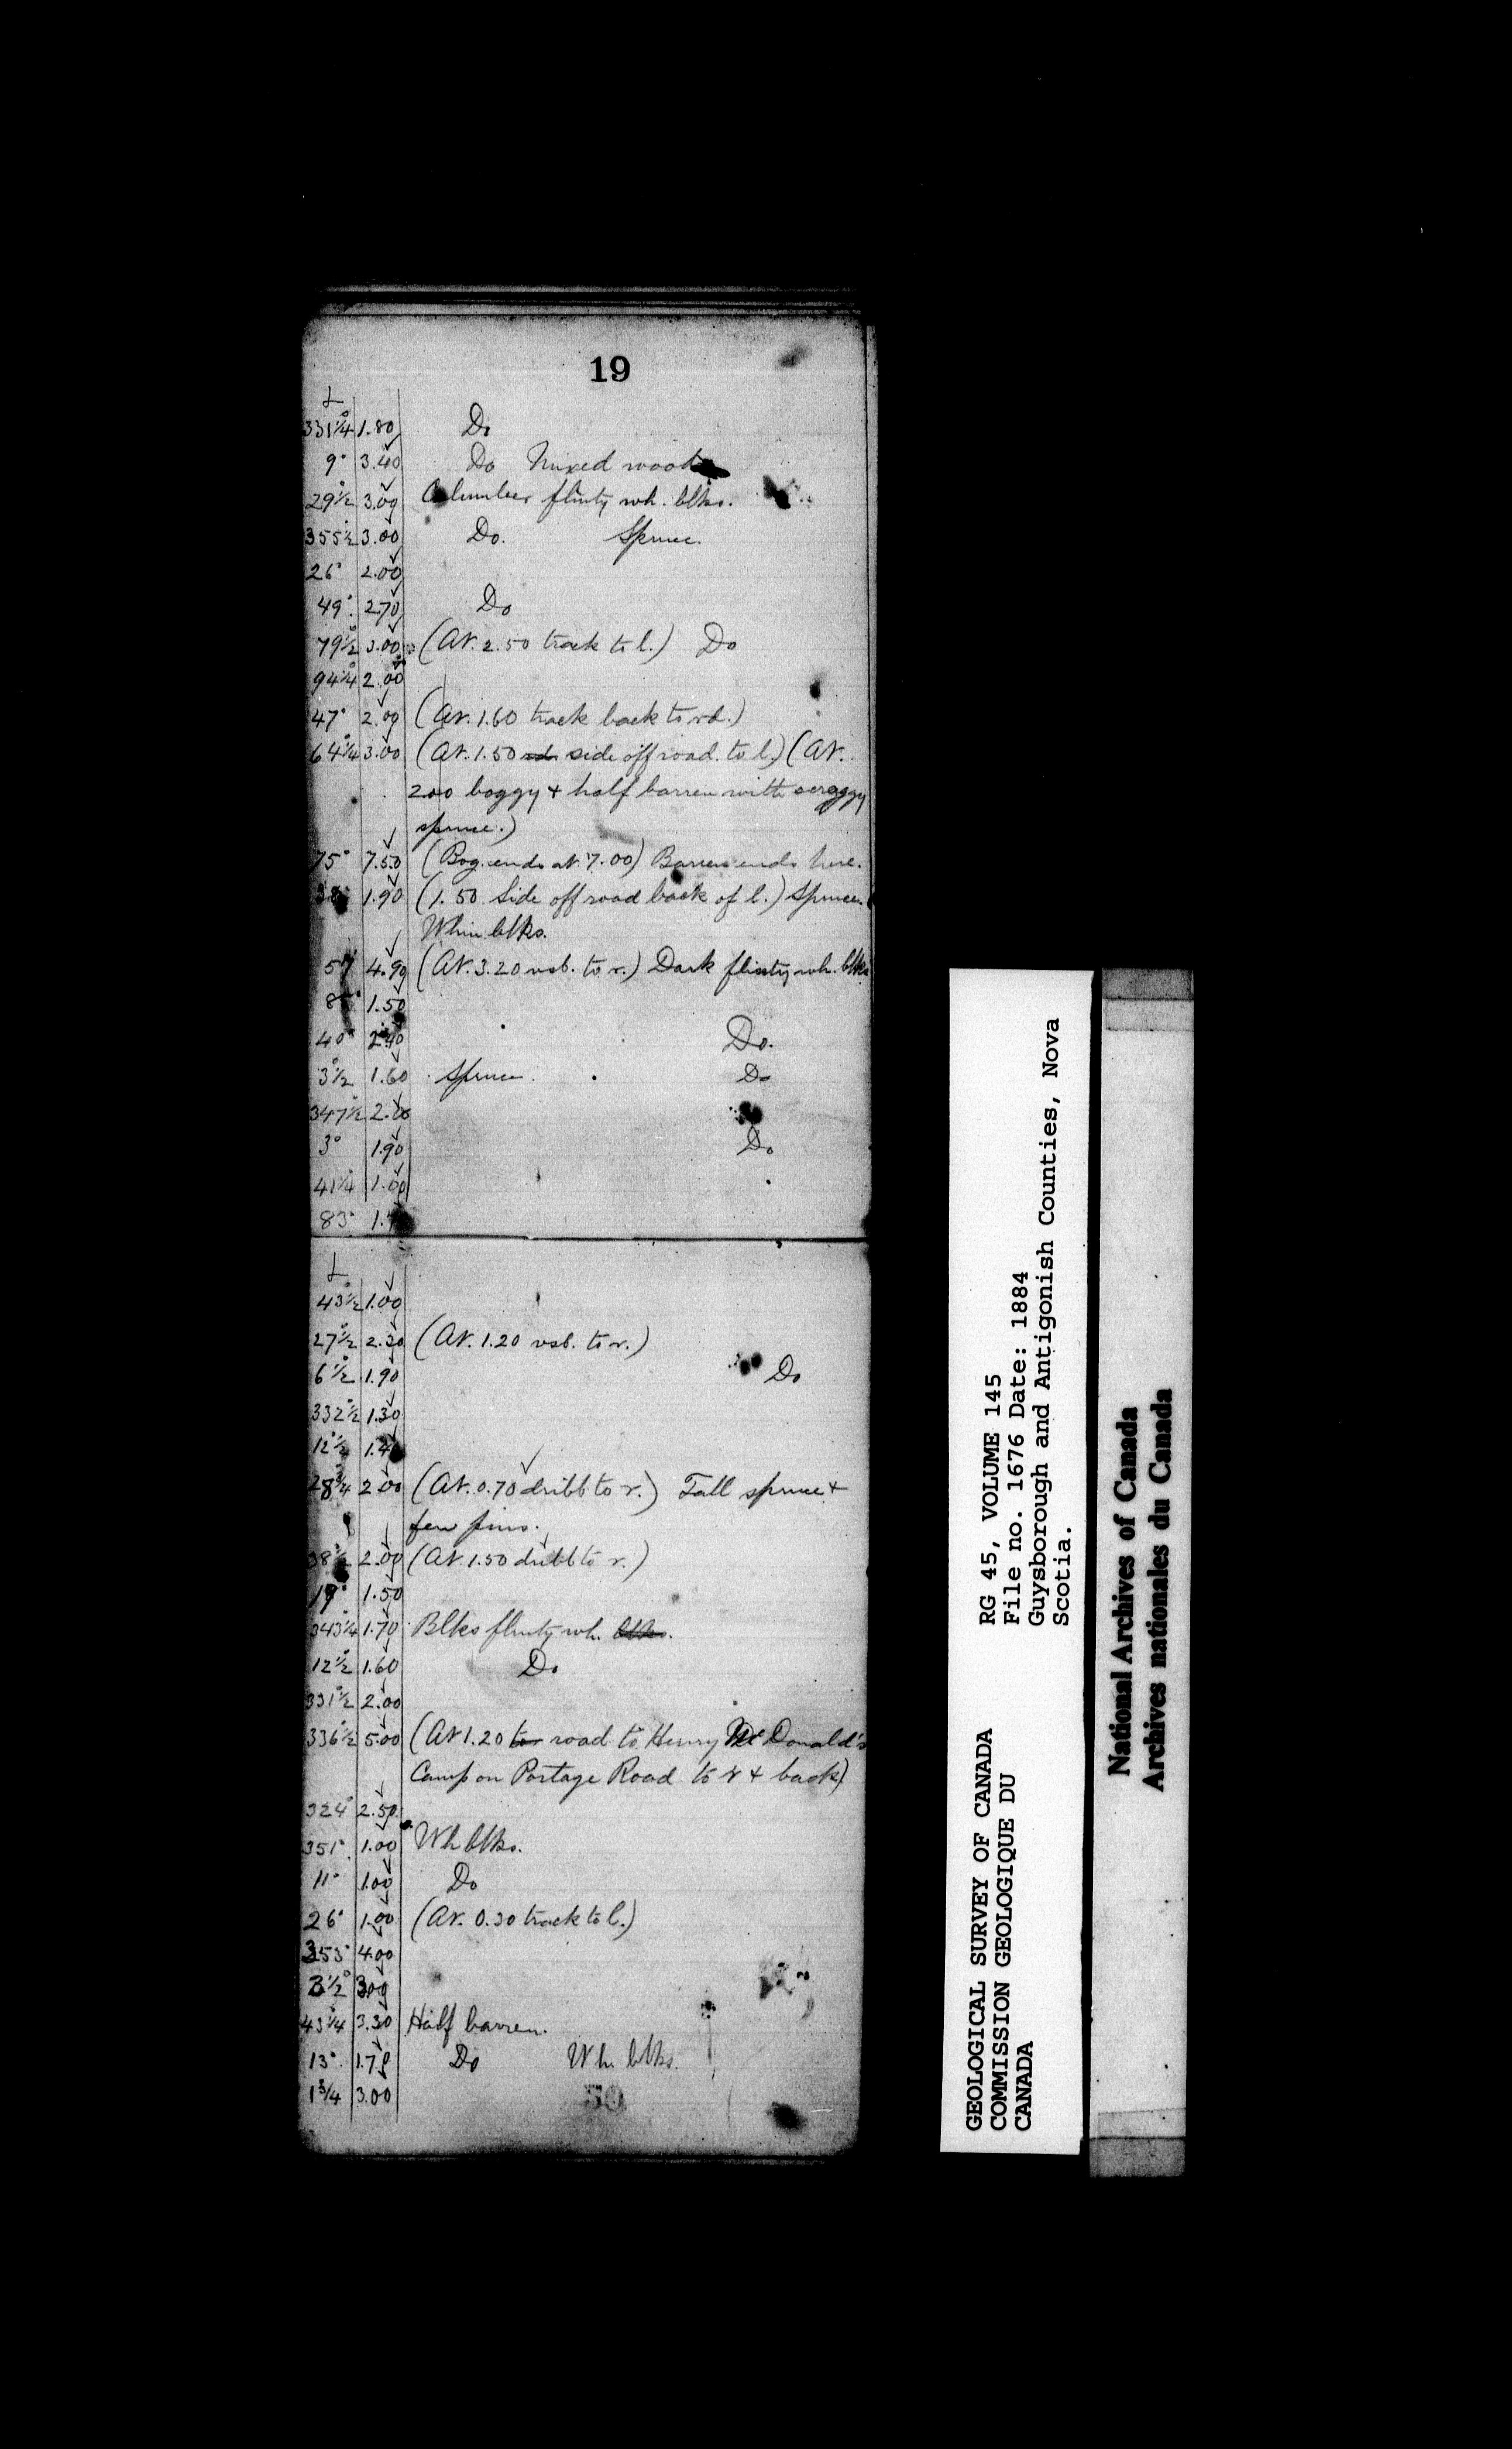 19
331 1/4° 1.80 Do
9° 3.40 Do Mixed wood
29 1/2° 3.00 flinty wh. blks.
355 1/2° 3.00 Do. Spruce.
26° 2.00
49° 2.70 Do
79 1/2° 3.00 (At 2.50 track to l.) Do
94 1/4° 2.00
47° 2.00 (At 1.60 track back to rd.)
64 1/4° 3.00 (At 1.50 side off road to l.) (At
2.00 boggy + half barren with scraggy
spruce.)
75° 7.50 (Bog ends at 7.00) Barren ends here.
1.90 (1.50 Side off road back of l.) Spruce.
Whin blks.
4.90 (At 3.20 vsb. to r.) Dark flinty wh. blks
1.50
40° 2.40 Do.
3 1/2° 1.60 Spruce. Do
347 1/2° 2.00
3° 1.90 Do
41 1/4° 1.00
83°
43 1/2° 1.00
27 1/2° 2.30 (At 1.20 vsb. to r.)
6 1/2° 1.90 Do
332 1/2° 1.30
12 1/2° 1.40
28 3/4° 2.00 (At 0.70 dribb to r.) Tall spruce +
few pines.
38 1/2° 2.00 (At 1.50 dribb to r.)
19° 1.50
343 1/4° 1.70 Blks flinty wh. blks.
12 1/2° 1.60 Do
331 1/2° 2.00
336 1/2° 5.00 (At 1.20 to road to Henry McDonald's
Camp on Portage Road to r + back)
324° 2.50
351° 1.00 Wh blks.
11° 1.00 Do
26° 1.00 (At 0.30 track to l.)
353° 4.00
3 1/2° 3.00
43 1/4° 3.30 Half barren.
13° 1.70 Do Wh. blks.
1 3/4° 3.00
50
RG 45, VOLUME 145
File no. 1676 Date: 1884
Guysborough and Antigonish Counties, Nova
Scotia.
GEOLOGICAL SURVEY OF CANADA
COMMISSION GEOLOGIQUE DU
CANADA
National Archives of Canada
Archives nationales du Canada